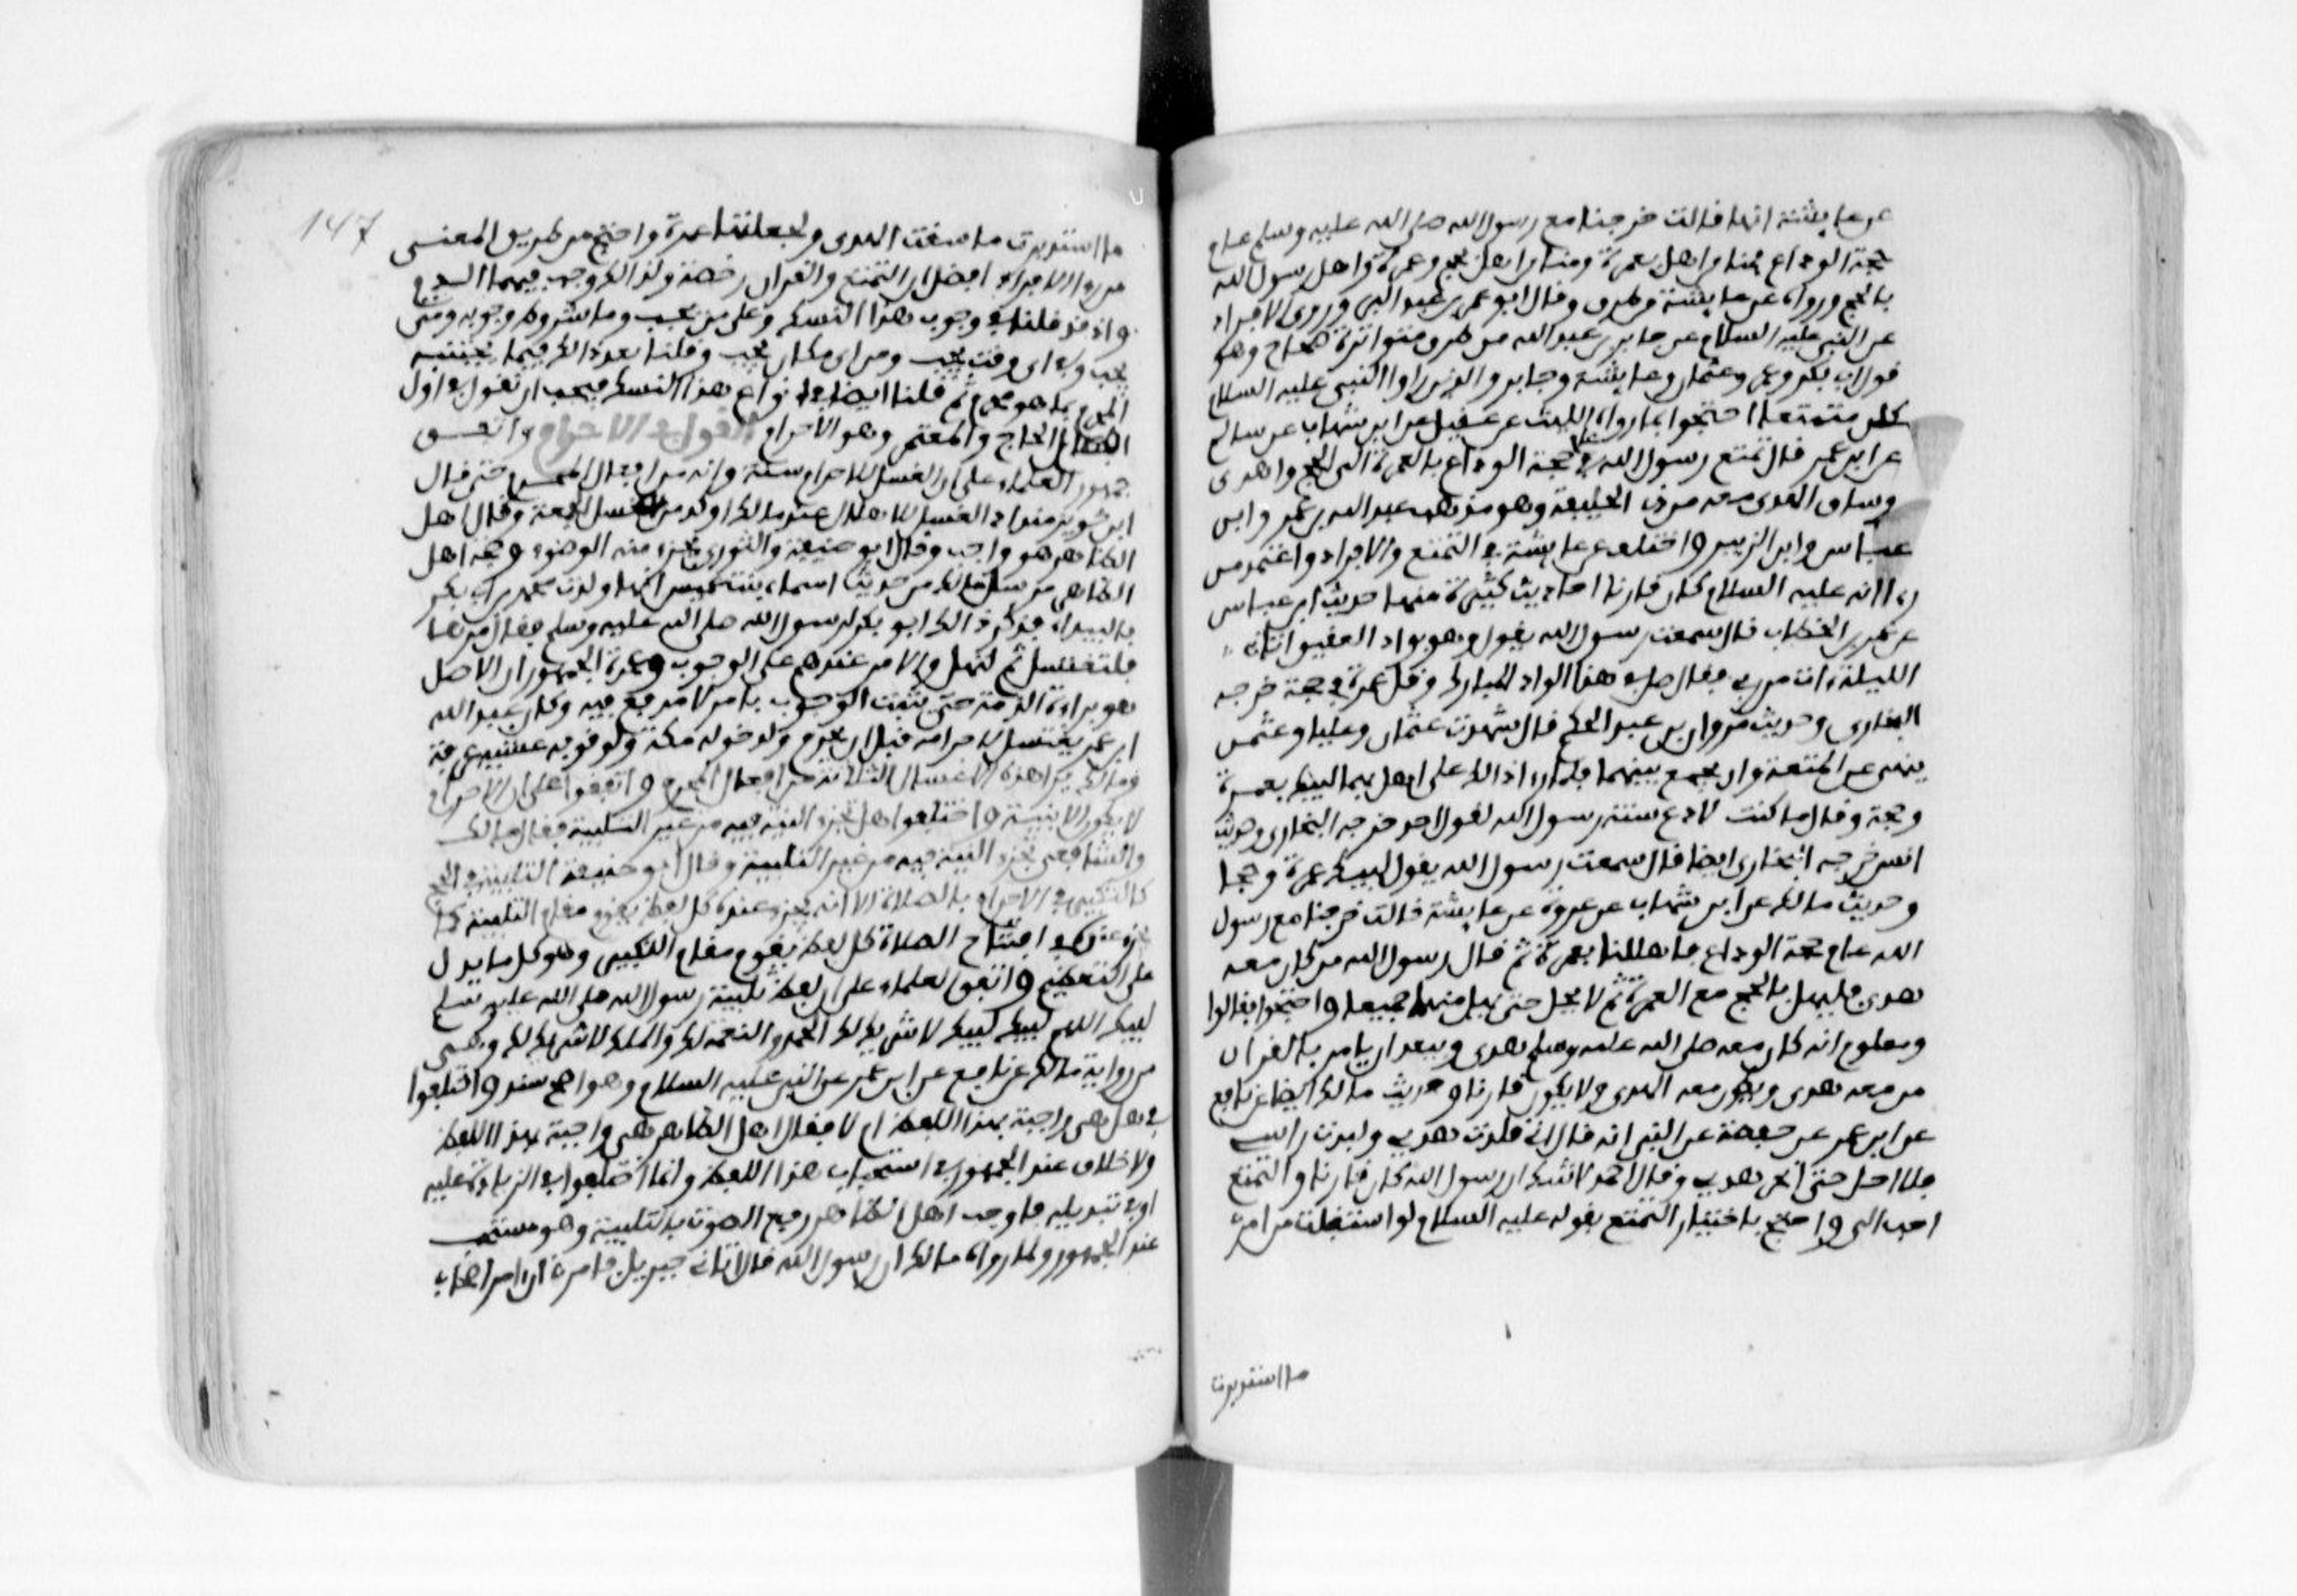 عن عايشة انها قالت خرجنا مع رسول الله صلى الله عليه وسلم عام
حجة الوداع فمنا من اهل بعمرة ومنا من اهل بحج وعمرة واهل رسول الله
بالحج ورواه عن عايشة وطرق وقال ابو عمر بن عبد البر وروى الافراد
عن النبي عليه السلام عن جابر بن عبد الله من طرق متواترة صحاح وهو
قول ابي بكر وعمر وعثمان وعايشة وجابر والذين راوا ان النبي عليه السلام
كان متمتعا احتجوا بما رواه الليث عن عقيل عن ابن شهاب عن سالم
عن ابن عمر قال تمتع رسول الله في حجة الوداع بالعمرة الى الحج واهدى
وساق الهدي معه من ذي الحليفة وهو مذهب عبد الله بن عمر وابن
عباس وابن الزبير واختلف عن عايشة في التمتع والافراد واعتمد من
رءا انه عليه السلام كان قارنا احاديث كثيرة منها حديث ابن عباس
عن عمر بن الخطاب قال سمعت رسول الله يقول وهو بواد العقيق اتاني
الليلة ءات من ربي فقال صل في هذا الواد المبارك وقل عمرة في حجة خرجه
البخاري وحديث مروان بن عبد الحكم قال شهدت عثمان وعليا وعثمن
ينهى عن المتعة وان يجمع بينهما فلما راى ذالك علي اهل بهما لبيك بعمرة
وحجة وقال ما كنت لادع سنة رسول الله لقول احد خرجه البخاري وحديث
انس خرجه البخاري ايضا قال سمعت رسول الله يقول لبيك عمرة وحجا
وحديث مالك عن ابن شهاب عن عروة عن عايشة قالت خرجنا مع رسول
الله عام حجة الوداع فاهللنا بعمرة ثم قال رسول الله من كان معه
هدي فليهل بالحج مع العمرة ثم لا يحل حتى يحل منهما جميعا واحتجوا فقالوا
ومعلوم انه كان معه صلى الله عليه وسلم هدي ويبعد ان يامر بالقران
من معه هدي ويكون معه الهدي ولا يكون قارنا وحديث مالك ايضا عن نافع
عن ابن عمر عن حفصة عن النبي انه قال اني قلدت هديي ولبدت راسي
فلا احل حتى انحر هديي وقال احمد لا شك ان رسول الله كان قارنا والتمتع
احب الي واحتج باختيار التمتع بقوله عليه السلام لو استقبلت من امري
ما استدبرت
147
ما استدبرت ما سقت الهدي ولجعلتها عمرة واحتج من طريق المعنى
من راى الافراد افضل ان التمتع والقران رخصة ولذالك وجب فيهما الدم
واذ قد قلنا في وجوب هذا النسك وعلى من يجب وما شروط وجوبه ومتى
يجب وفي اي وقت يجب ومن اي مكان يجب وقلنا بعد ذالك فيما يجتنبه
المحرم بما هو محرم ثم قلنا ايضا في انواع هذا النسك فيجب ان نقول في اول
افعال الحاج والمعتمر وهو الاحرام القول في الاحرام واتفق
جمهور العلماء على ان الغسل للاحرام سنة وانه من افعال المحرم حتى قال
ابن خويز منداد الغسل للاهلال عند مالك اوكد من غسل الجمعة وقال اهل
الظاهر هو واجب وقال ابو حنيفة والثوري يجزء منه الوضوء وحجة اهل
الظاهر مرسل مالك من حديث اسماء بنت عميس انها ولدت محمد بن ابي بكر
بالبيداء فذكر ذالك ابو بكر لرسول الله صلى الله عليه وسلم فقال مرها
فلتغتسل ثم لتهل والامر عندهم على الوجوب وعمدة الجمهور ان الاصل
هو براءة الذمة حتى يثبت الوجوب بامر لا مدفع فيه وكان عبد الله
ابن عمر يغتسل لاحرامه قبل ان يحرم ولدخوله مكة ولوقوفه عشية عرفة
ومالك يرى هذه الاغسال الثلاثة من افعال المحرم واتفقوا على ان الاحرام
لا يكون الا بنية واختلفوا هل تجزء النية فيه من غير التلبية فقال مالك
والشافعي تجزء النية فيه من غير التلبية وقال ابو حنيفة التلبية في الحج
كالتكبير في الاحرام بالصلاة الا انه يجزء عنده كل لفظ يقوم مقام التلبية كما
يجزء عنده في افتتاح الصلاة كل لفظ يقوم مقام التكبير وهو كل ما يدل
على التعظيم واتفق العلماء على ان لفظ تلبية رسول الله صلى الله عليه وسلم
لبيك اللهم لبيك لبيك لا شريك لك لبيك ان الحمد والنعمة لك والملك لا شريك لك وهي
من رواية مالك عن نافع عن ابن عمر عن النبي عليه السلام وهو اصح سند واختلفوا
في هل هي واجبة بهذا اللفظ ام لا فقال اهل الظاهر هي واجبة بهذا اللفظ
ولا خلاف عند الجمهور في استحباب هذا اللفظ وانما اختلفوا في الزيادة عليه
او في تبديله فاوجب اهل الظاهر رفع الصوت بالتلبية وهو مستحب
عند الجمهور ولما رواه مالك ان رسول الله قال اتاني جبريل فامرني ان امر اصحابي